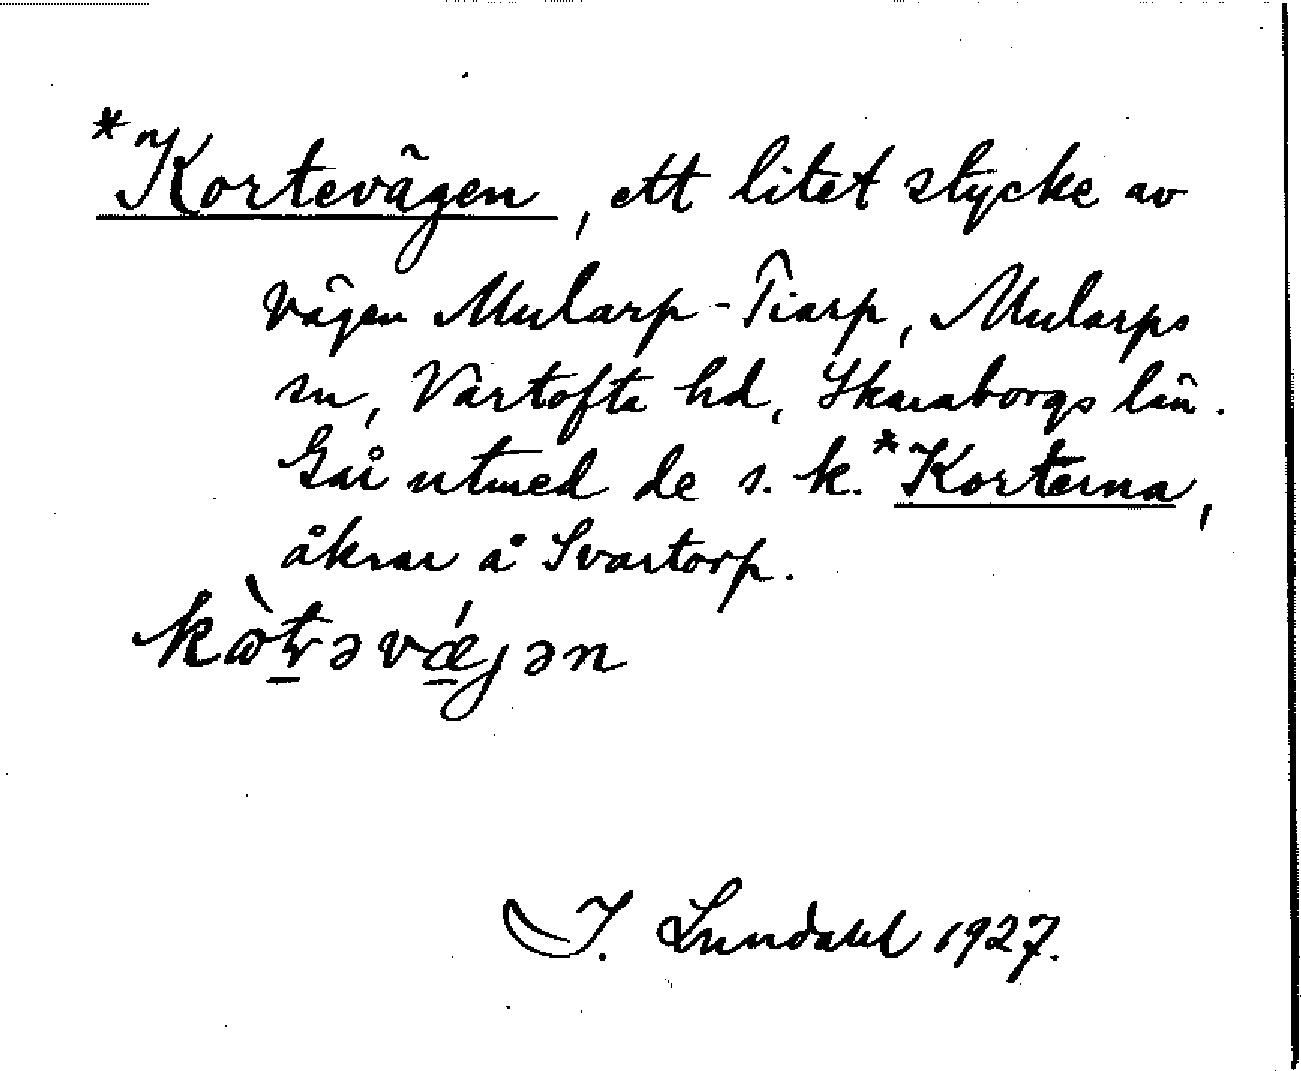 *Kortevägen, ett litet stycke av
vägen Mularp - Tiarp, Mularps
sn, Vartofta hd, Skaraborgs län.
Går utmed de s.k. *Korterna,
åkrar å Svartorp.
kòt̠rəvǽ̠jən
I. Lundahl 1927.